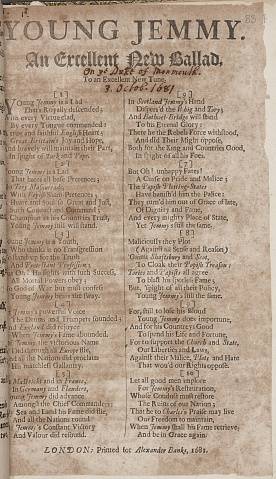 YOUNG JEMMY.
An Excellent New Ballad,
On ye Duke of Monmouth.
To an Excellent New Tune.
3. Octob. 1681
[1]
Young Jemmy is a Lad
That's Royally descended;
With every Virtue clad,
By every Tongue commended:
A true and faithful English Heart;
Great Britain's Joy and Hope,
And bravely will maintain their Part,
In spight of Turk and Pope.
[2]
Young Jemmy is a Lad
That hates all base Pretences;
No Tory Masquerade,
Nor Popish Sham Pretences:
A Heart and Soul so Great and Just,
Such Conduct and Command;
his Countries Trust,
Young Jemmy still will stand.
[3]
Young Jemmy is a Youth,
Who thinks it no Transgression
To stand up for the Truth
And Protestant Profession:
Oh! He fights with such Success,
All Mortal Powers obey;
No God of War but must confess
Young Jemmy bears the sway.
[4]
Young Jemmy's powerful Voice
Drums and Trumpets sounded;
And England did rejoyce
When Jemmy's Fame abounded.
Jemmy, the victorious Name
Did through all Europe flie,
And all the Nations did proclaim
His matchless Gallantry.
[5]
At Maestricht and in France,
In Germany and Flanders,
Young Jemmy did advance
Among the Chief Commanders;
Sea and Land his Fame did flie,
And all the Nations round
Jemmy's Constant Victory
And Valour did resound.
[6]
In Scotland Jemmy's Hand
Dispers'd the Whig and Tory;
And Bothwel-Bridge will stand
To his Eternal Glory:
There he the Rebels Force withstood,
And did Their Might oppose,
Both for the King and Countries Good,
In spight of all his Foes.
[7]
But Oh! unhappy Fates!
A Curse on Pride and Malice;
The Popish Plotting-States
Have banish'd him the Palice:
They turn'd him out of Grace of late,
Of Dignity and Fame,
And every mighty Place of State,
Yet Jemmy's still the same.
[8]
Maliciously they Plot
(Against all Sense and Reason)
Great Shaftsbury and Scot,
To Cloak their Popish Treason
Tories and Papists all agree
To blast his spotless Fame;
But, 'spight of all their Policy,
Young Jemmy's still the same.
[9]
For, still to lose his Blood
Young Jemmy does importune,
And for his Countreys Good
To spend his Life and Fortune,
For to support the Church and State,
Our Liberties and Laws,
Against their Malice, Plots, and Hate
That wou'd our Rights oppose.
[10]
Let all good men implore
For Jemmy's Restauration,
Whose Conduct must restore
The Ruins of our Nation;
That he to Charles's Praise may live
Our Freedom to maintain,
When Jemmy shall his Fame retrieve,
And be in Grace again.
LONDON: Printed for Alexander Banks, 1681.